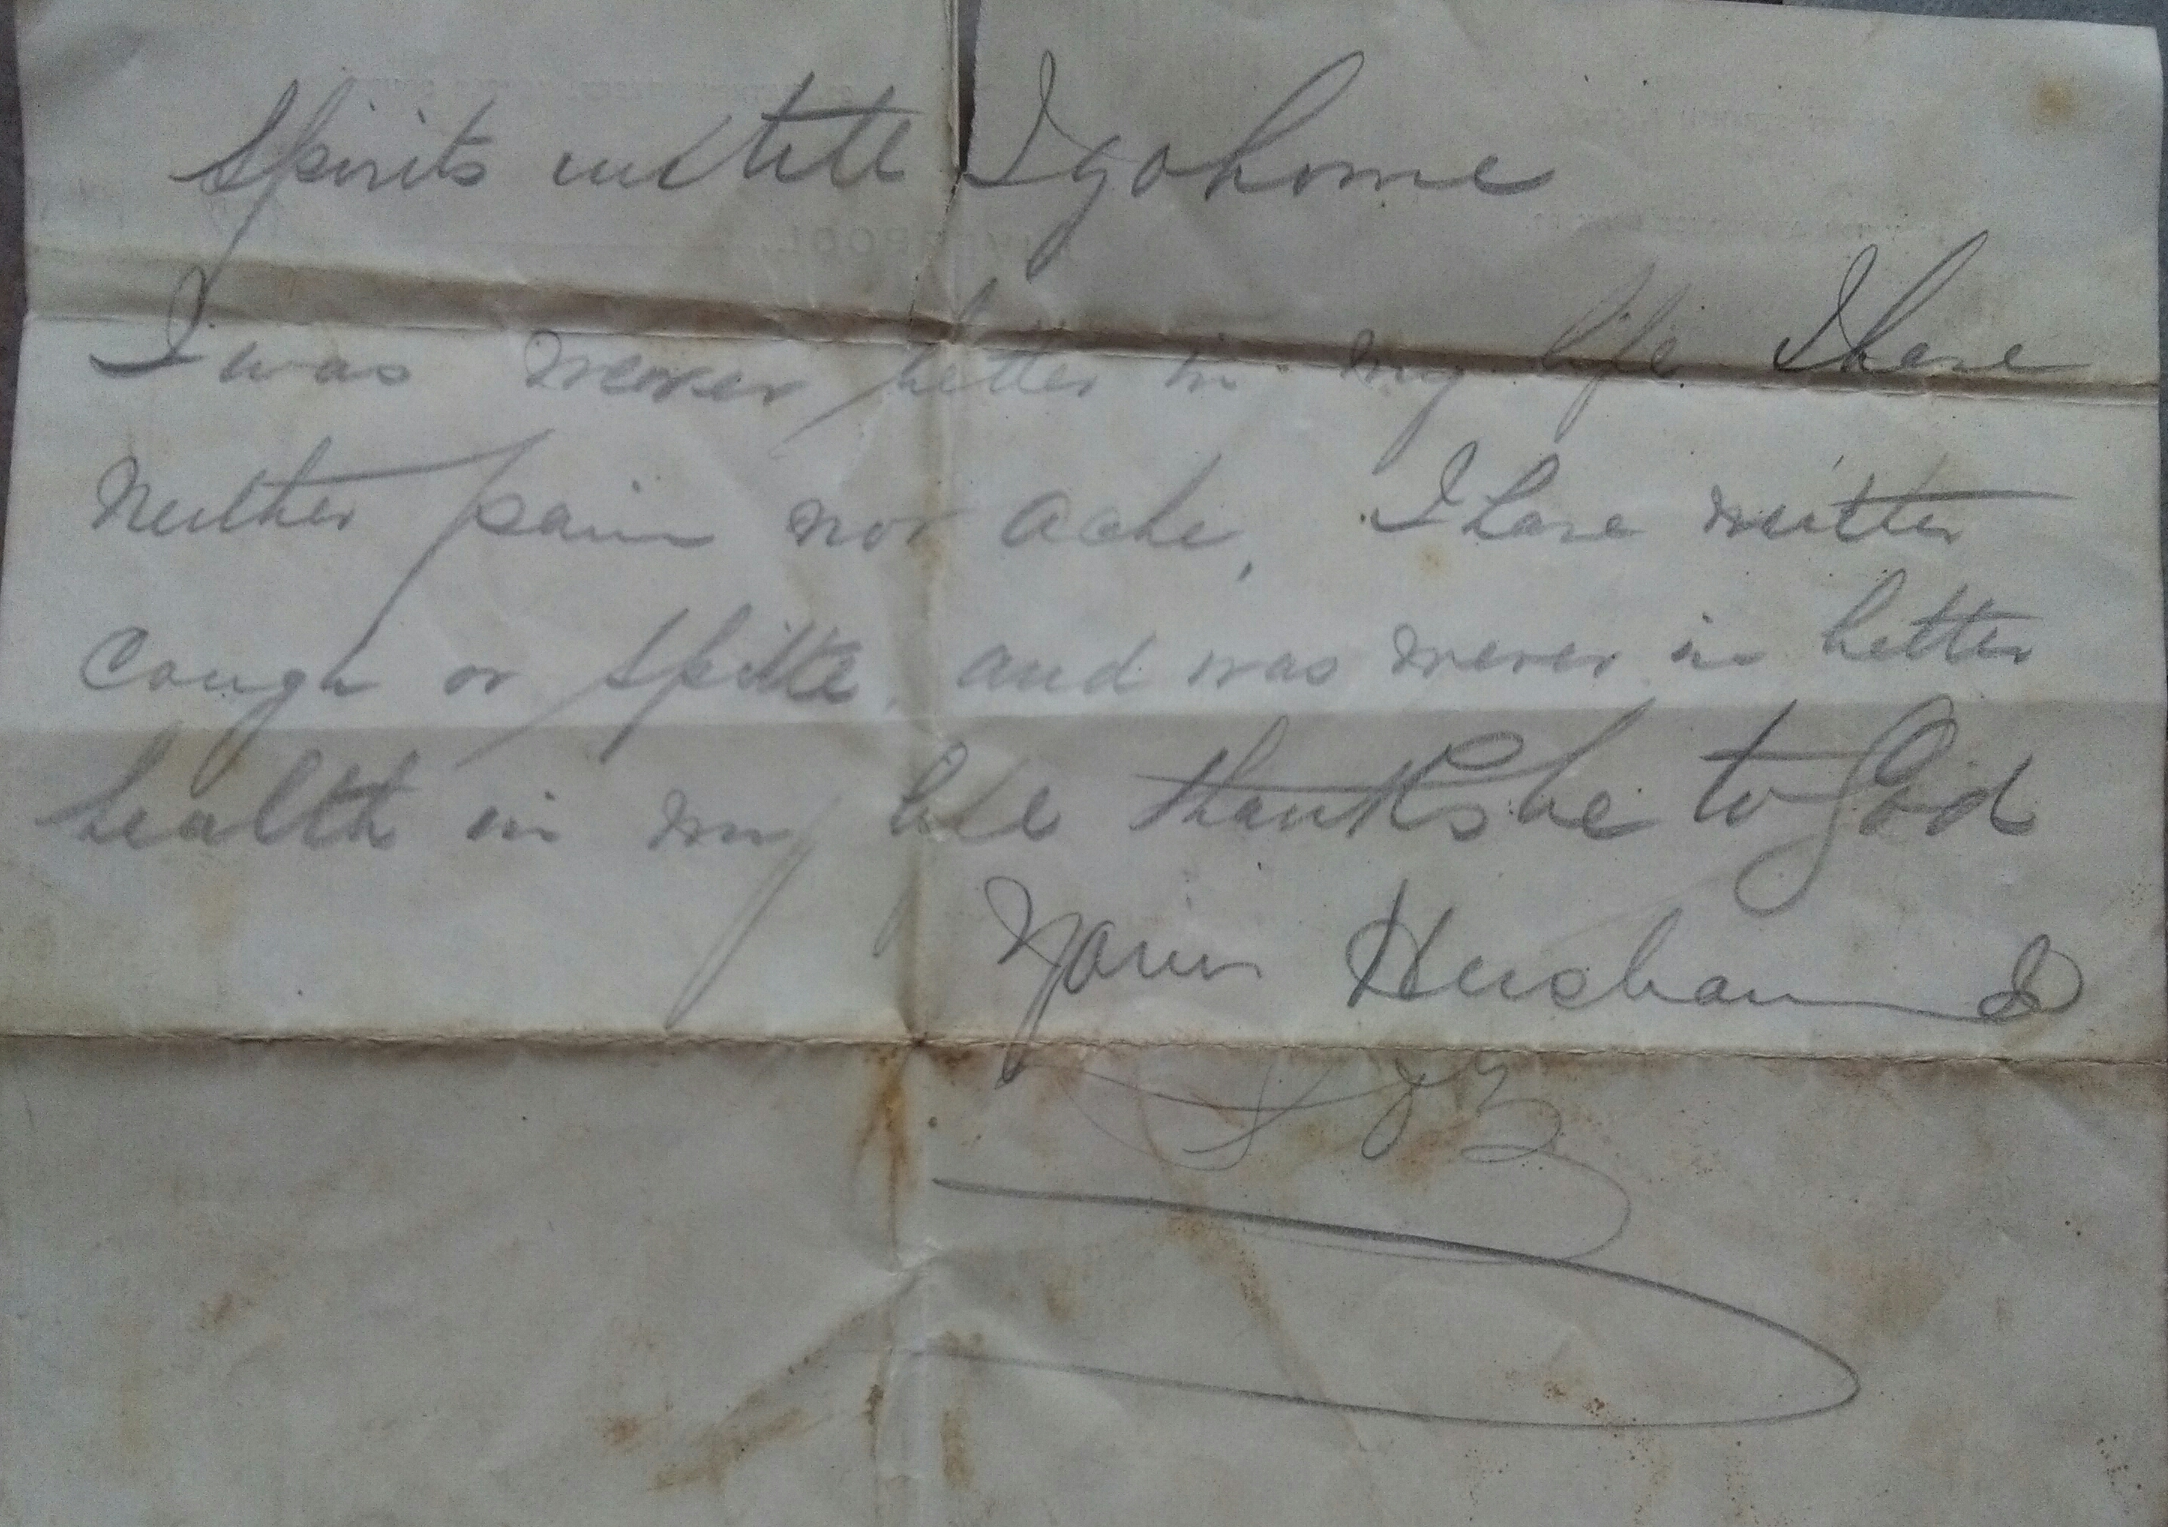 spirits untill I go home
I was never better in my life I have
Neither pain nor ache, I have neither
Cough or spitte, and was never in better
health in my life thanks be to God
Your Husband